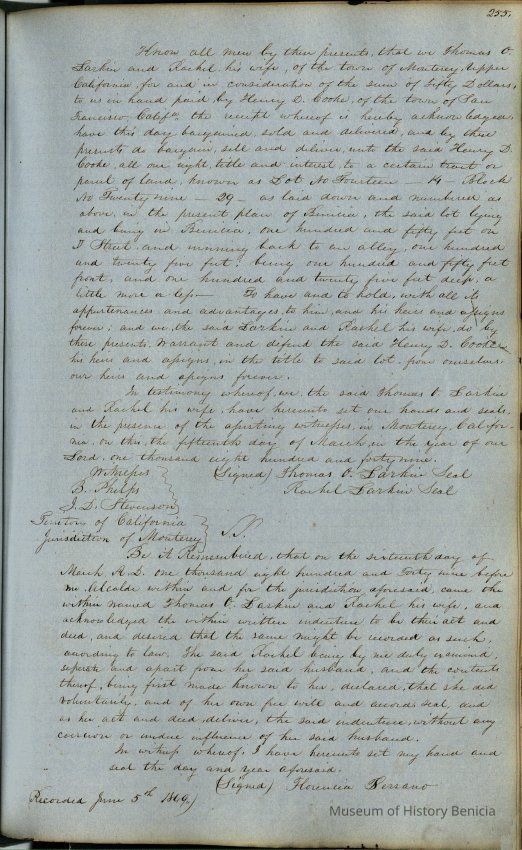 255.
Know all men by these presents, that we Thomas O.
Larkin and Rachel his wife, of the town of Monterey, Upper
California, for and in consideration of the sum of Fifty Dollars,
to us in hand paid by Henry D. Cooke, of the town of San
Francisco, Califa, the receipt whereof is hereby acknowledged,
have this day bargained, sold and delivered, and by these
presents do bargain, sell and deliver, unto the said Henry D.
Cooke, all our right, title and interest, to a certain tract or
parcel of land, known as Lot No Fourteen — 14 — Block
No Twenty nine — 29 — as laid down and numbered as
above, in the present plan of Benicia, the said lot lying
and being in Benicia, one hundred and fifty feet on
D Street, and running back to an alley, one hundred
and twenty five feet: being one hundred and fifty feet
front, and one hundred and twenty five feet deep, a
little more or less — To have and to hold, with all its
appurtenances and advantages, to him, and his heirs and assigns
forever; and we, the said Larkin and Rachel his wife, do by
these presents, Warrant and defend the said Henry D. Cooke
his heirs and assigns, in the title to said lot, from ourselves,
our heirs and assigns forever.
In testimony whereof, we, the said Thomas O. Larkin
and Rachel his wife, have hereunto set our hands and seals,
in the presence of the witnesses, in Monterey, Califor-
nia, on this, the fifteenth day of March, in the year of our
Lord, one thousand eight hundred and forty nine.
Witnesses (Signed) Thomas O. Larkin Seal
B. Phelps Rachel Larkin Seal
J. D. Stevenson
Territory of California
Jurisdiction of Monterey S.S.
Be it Remembered, that on the sixteenth day of
March A.D. one thousand eight hundred and Forty nine before
me, Alcalde within and for the jurisdiction aforesaid, came the
within named Thomas O. Larkin and Rachel his wife, and
acknowledged the within written indenture to be their act and
deed, and desired that the same might be recorded as such,
according to law. The said Rachel being by me duly examined,
seperate and apart from her said husband, and the contents
thereof, being first made known to her, declared, that she did
voluntarily, and of her own free will and accord, seal, and
as her act and deed, deliver, the said indenture, without any
coercion or undue influence of her said husband.
In witness whereof, I have hereunto set my hand and
seal the day and year aforesaid.
(Signed) Florencio Serrano
Recorded June 5th 1849.)
Museum of History Benicia